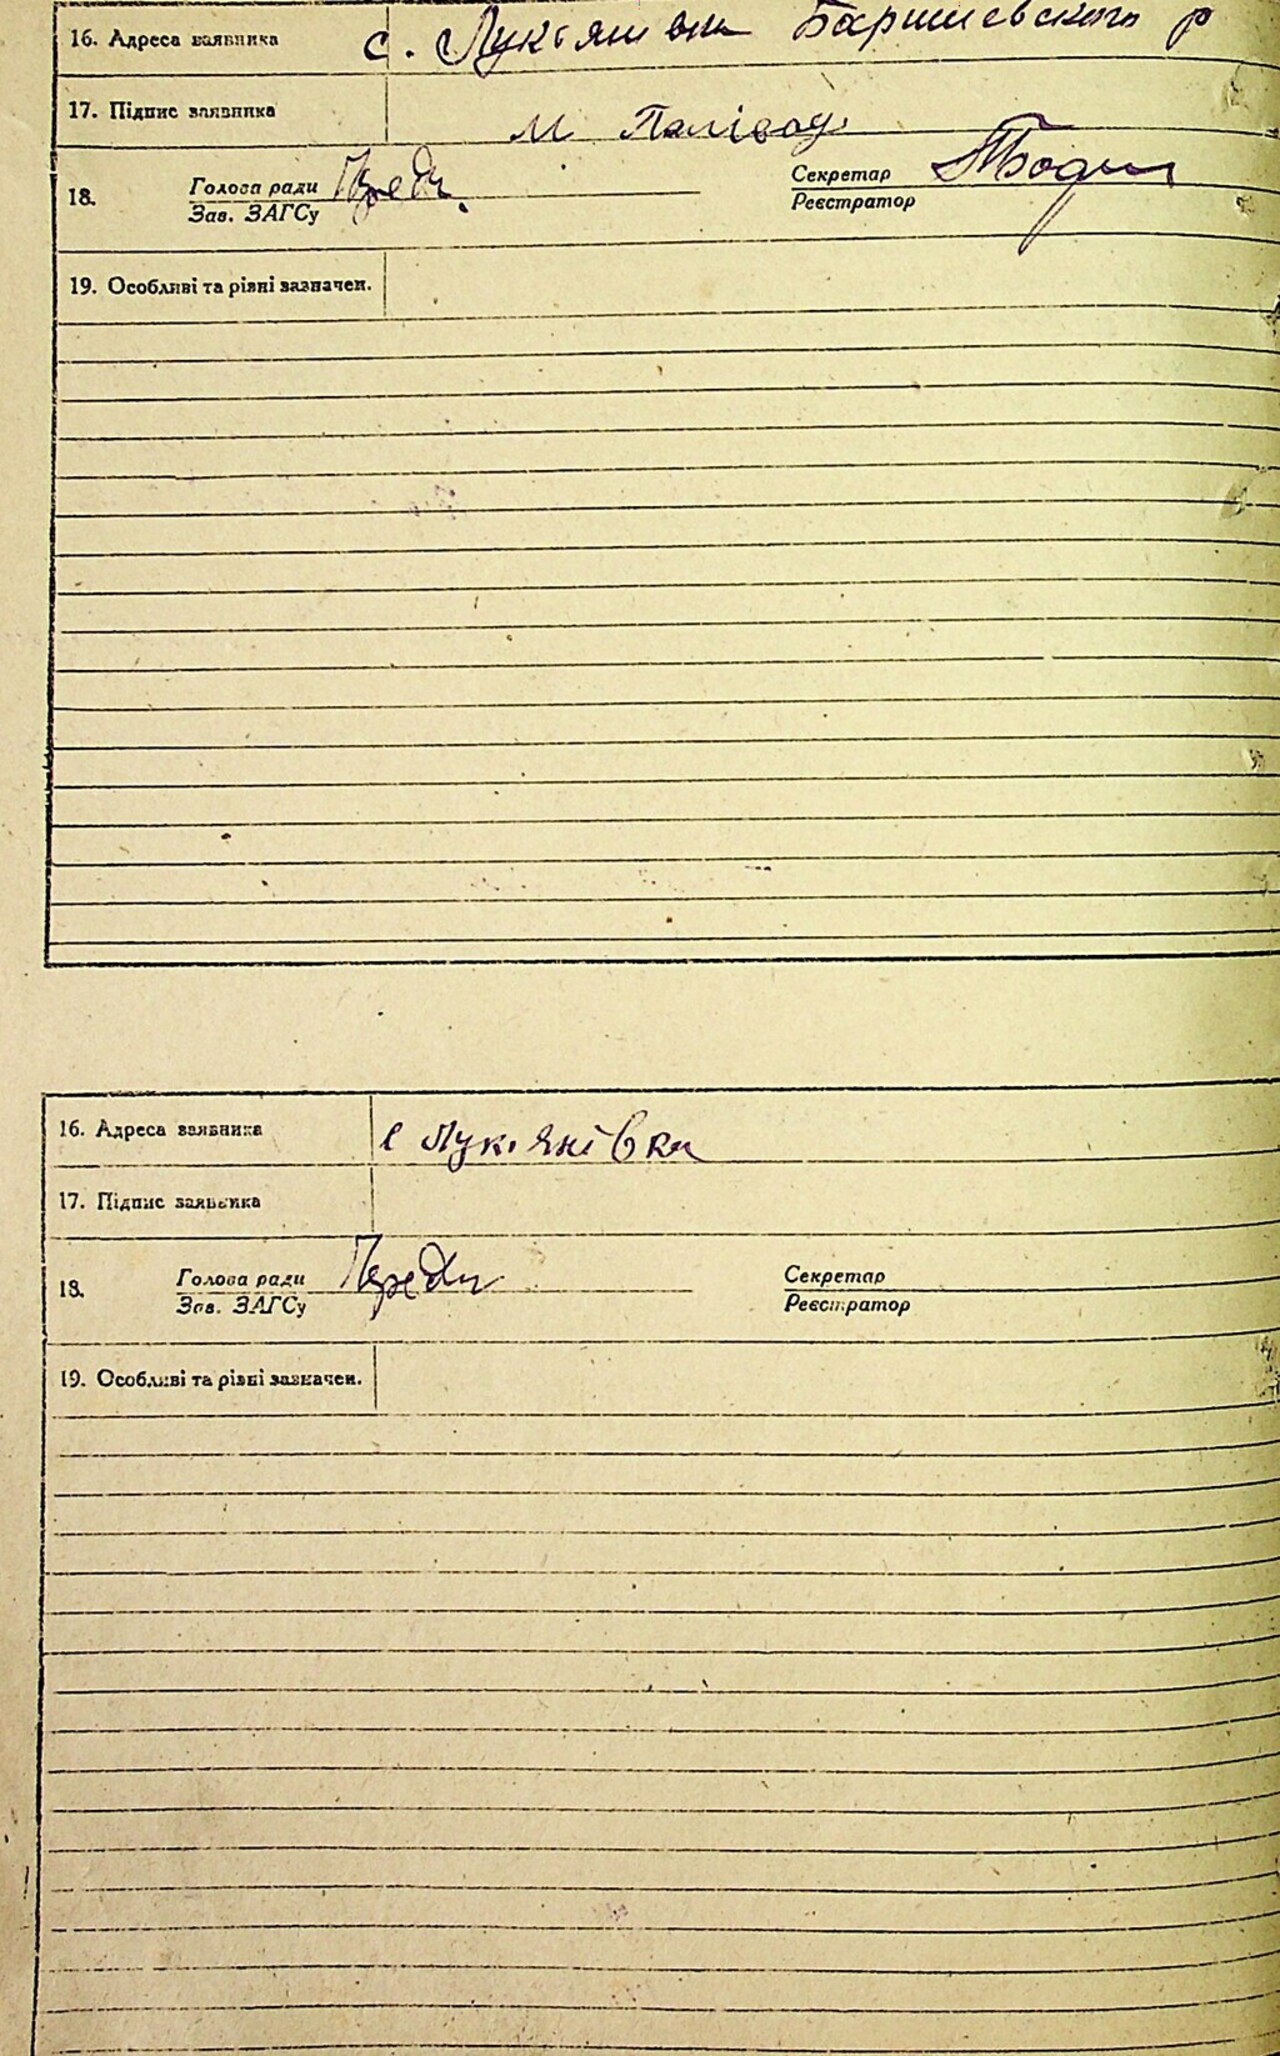 16. Адреса заявника с. Лукьянівка Баришевського р
17. Підпис заявника М Палівод
18. Голова ради Секретар
Зав. ЗАГСу Реєстратор
19. Особливі та рівні зазначен.
16. Адреса заявника с Лук'янівка
17. Підпис заявника
18. Голова ради Секретар
Зав. ЗАГСу Реєстратор
19. Особливі та рівні зазначен.